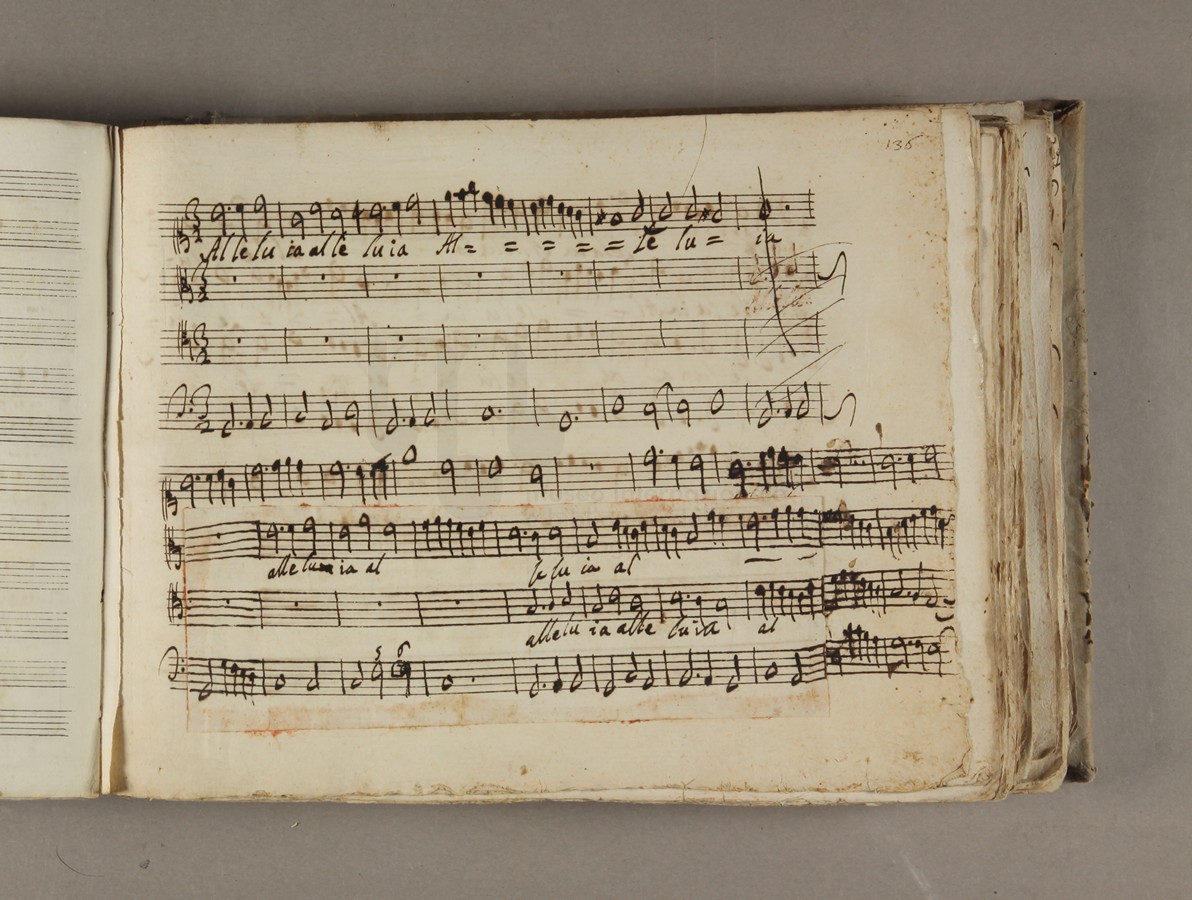 136
Alleluia alleluia Al = = = = = le lu = ia
alleluia al le lu ia al
alleluia alleluia al
5 6